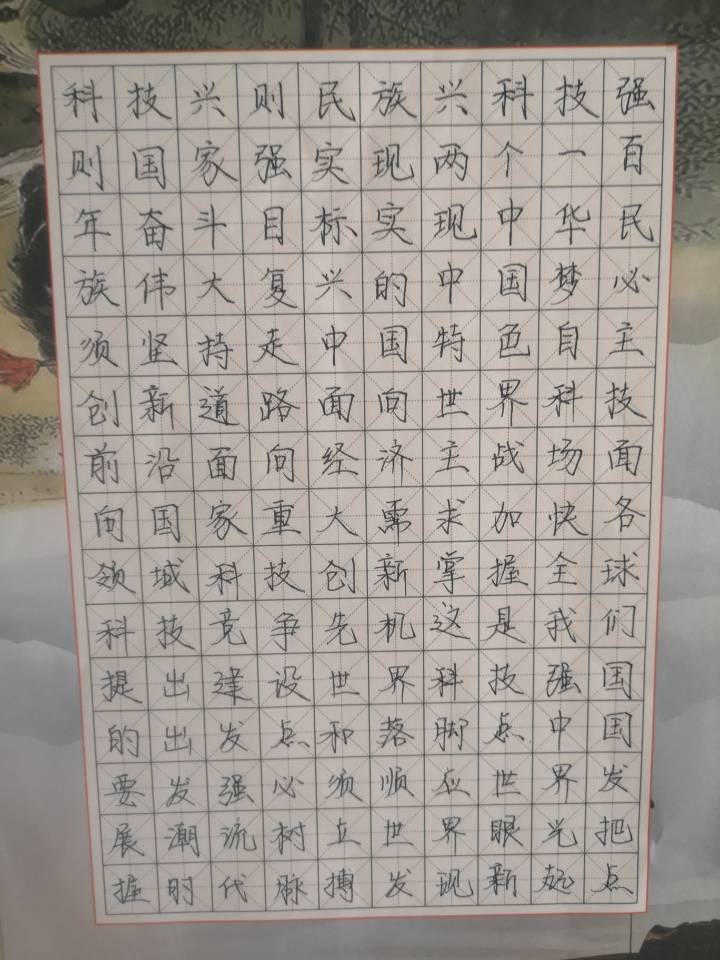 科技兴则民族兴科技强
则国家强实现两个一百
年奋斗目标实现中华民
族伟大复兴的中国梦必
须坚持走中国特色自主
创新道路面向世界科技
前沿面向经济主战场面
向国家重大需求加快各
领域科技创新掌握全球
科技竞争先机这是我们
提出建设世界科技强国
的出发点和落脚点中国
要发强必须顺应世界发
展潮流树立世界眼光把
握时代脉搏发现新起点